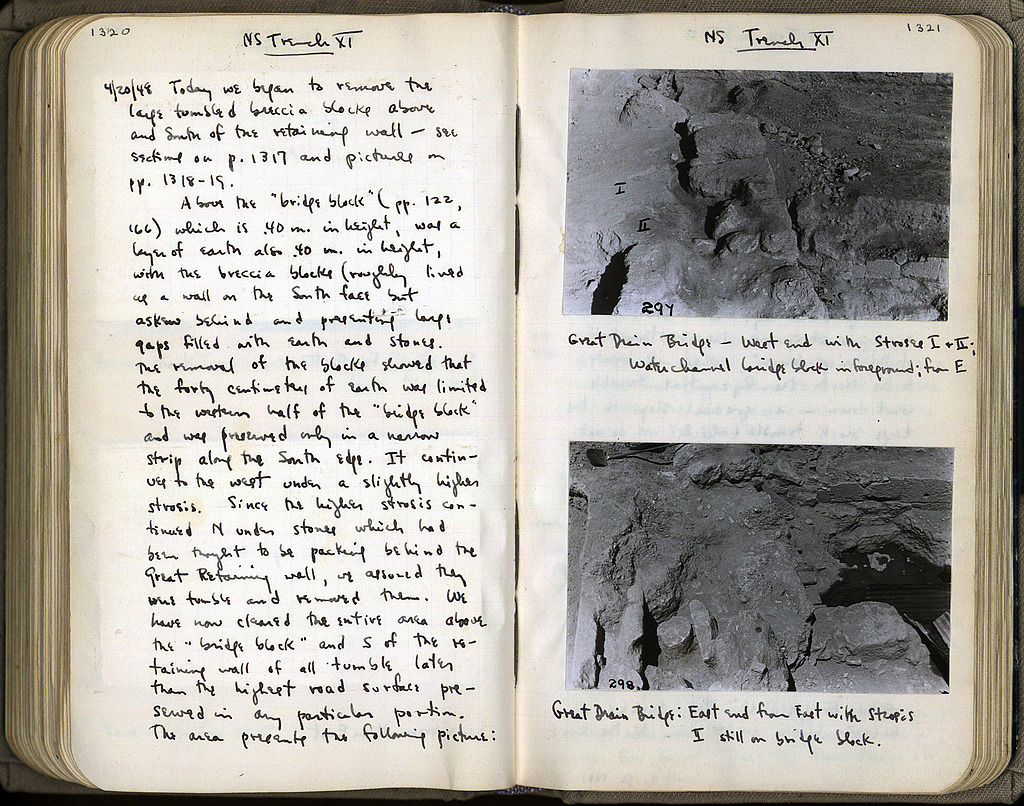 1320
NS Trench XI
4/20/48 Today we began to remove the
large tumbled breccia blocks above
and South of the retaining wall — see
section on p. 1317 and pictures on
pp. 1318-19.
Above the "bridge block" (pp. 122,
166) which is .40 m. in height, was a
layer of earth also .40 m. in height,
with the breccia blocks (roughly lined
as a wall on the South face but
askew behind and presenting large
gaps filled with earth and stones.
The removal of the blocks showed that
the forty centimeters of earth was limited
to the western half of the "bridge block"
and was preserved only in a narrow
strip along the South edge. It contin-
ues to the west under a slightly higher
strosis. Since the higher strosis con-
tinued N under stones which had
been thought to be packing behind the
Great Retaining wall, we assumed they
were tumble and removed them. We
have now cleared the entire area above
the "bridge block" and S of the re-
taining wall of all tumble later
than the highest road surface pre-
served in any particular portion.
The area presents the following picture:
1321
NS Trench XI
I
II
297
Great Drain Bridge — West end with Stroses I + II;
Water channel bridge block in foreground; from E
298
Great Drain Bridge: East end from East with Strosis
II still on bridge block.